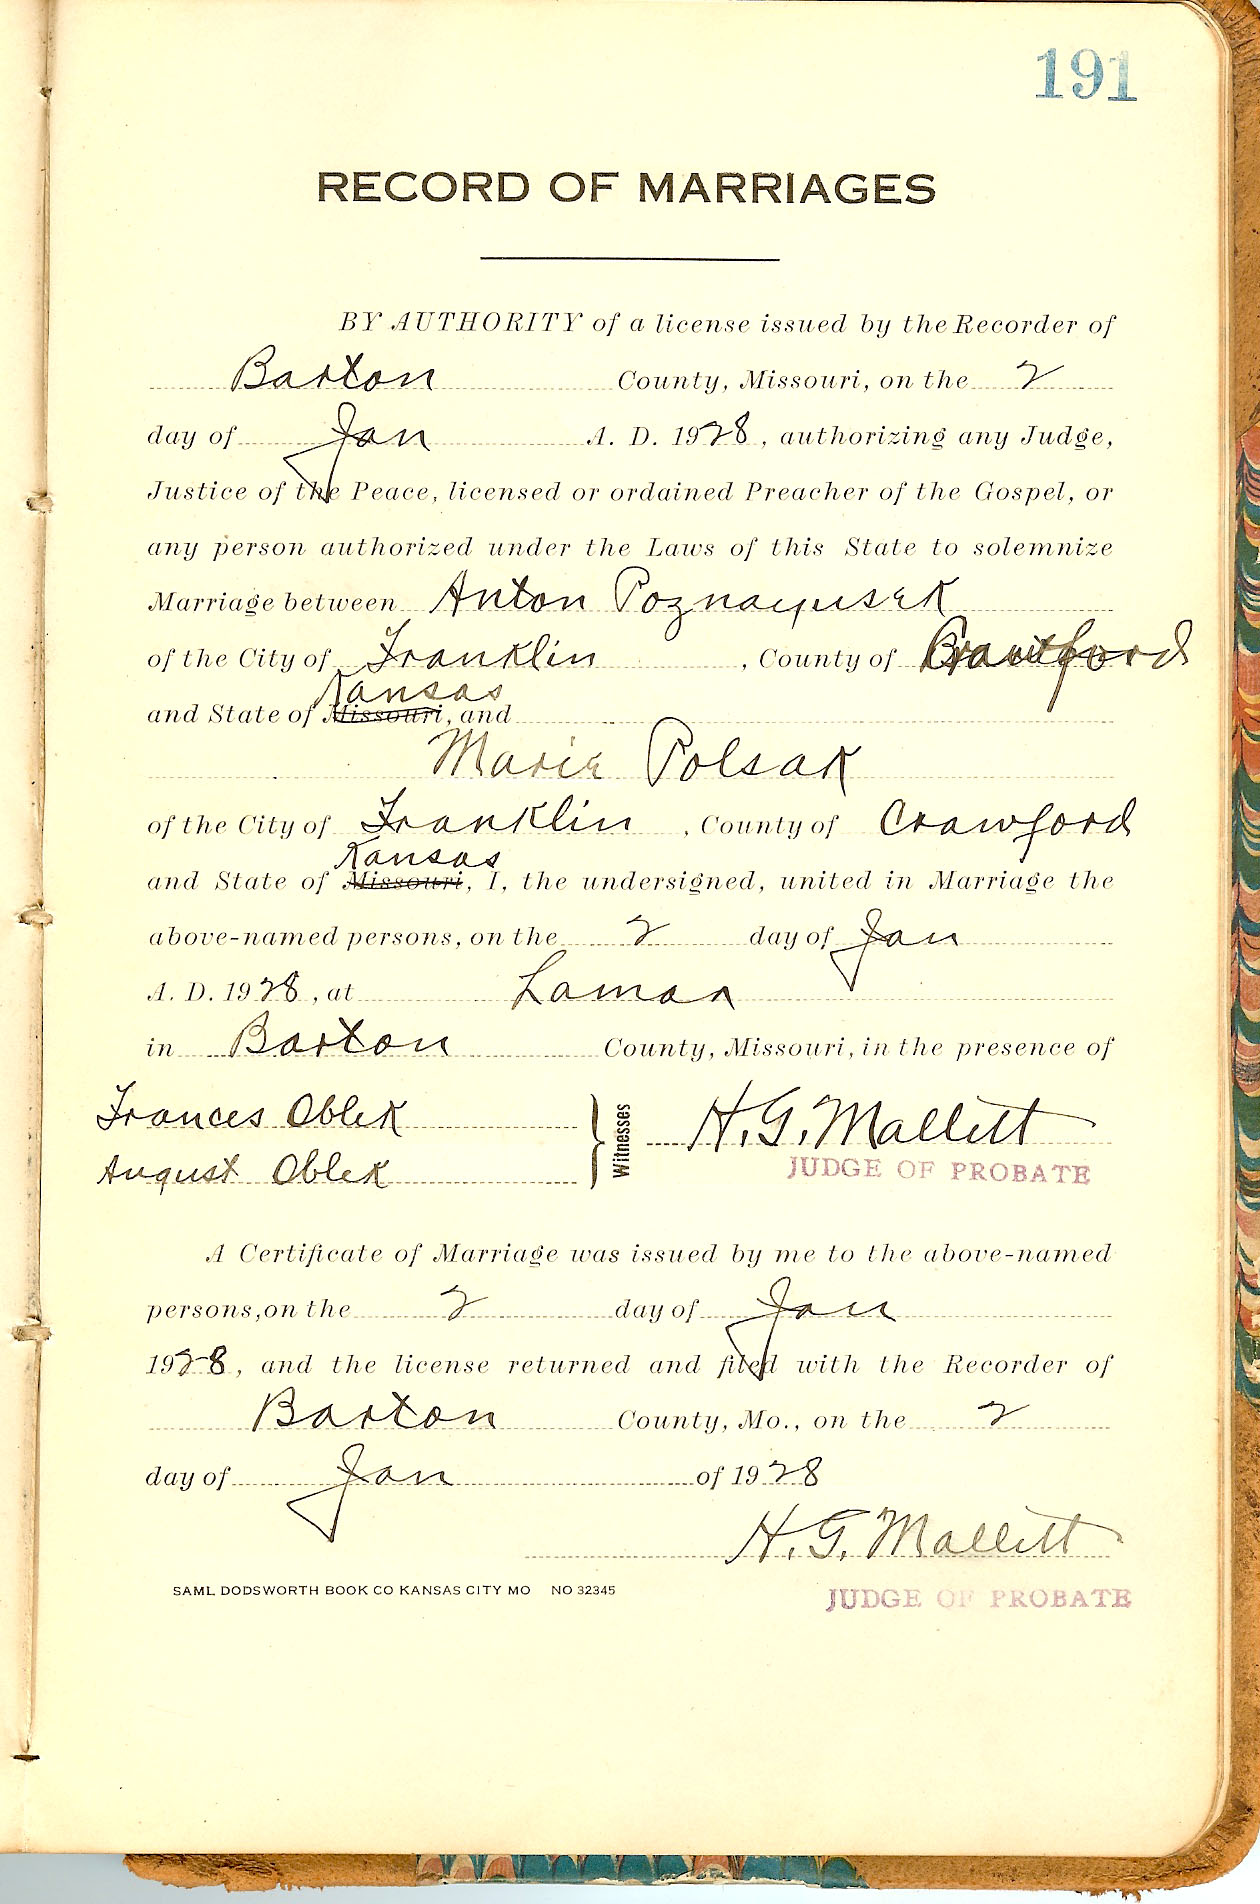 191
RECORD OF MARRIAGES
BY AUTHORITY of a license issued by the Recorder of
Barton County, Missouri, on the 2
day of Jan A. D. 1928, authorizing any Judge,
Justice of the Peace, licensed or ordained Preacher of the Gospel, or
any person authorized under the Laws of this State to solemnize
Marriage between Anton
of the City of Franklin, County of Crawford
Kansas
and State of Missouri, and
Marie Polsak
of the City of Franklin, County of Crawford
Kansas
and State of Missouri, I, the undersigned, united in Marriage the
above-named persons, on the 2 day of Jan
A. D. 1928, at Lamar
in Barton County, Missouri, in the presence of
Frances Oblek
August Oblek
Witnesses
H. G. Mallett
JUDGE OF PROBATE
A Certificate of Marriage was issued by me to the above-named
persons, on the 2 day of Jan
1928, and the license returned and filed with the Recorder of
Barton County, Mo., on the 2
day of Jan of 1928
H. G. Mallett
SAML DODSWORTH BOOK CO KANSAS CITY MO NO 32345
JUDGE OF PROBATE